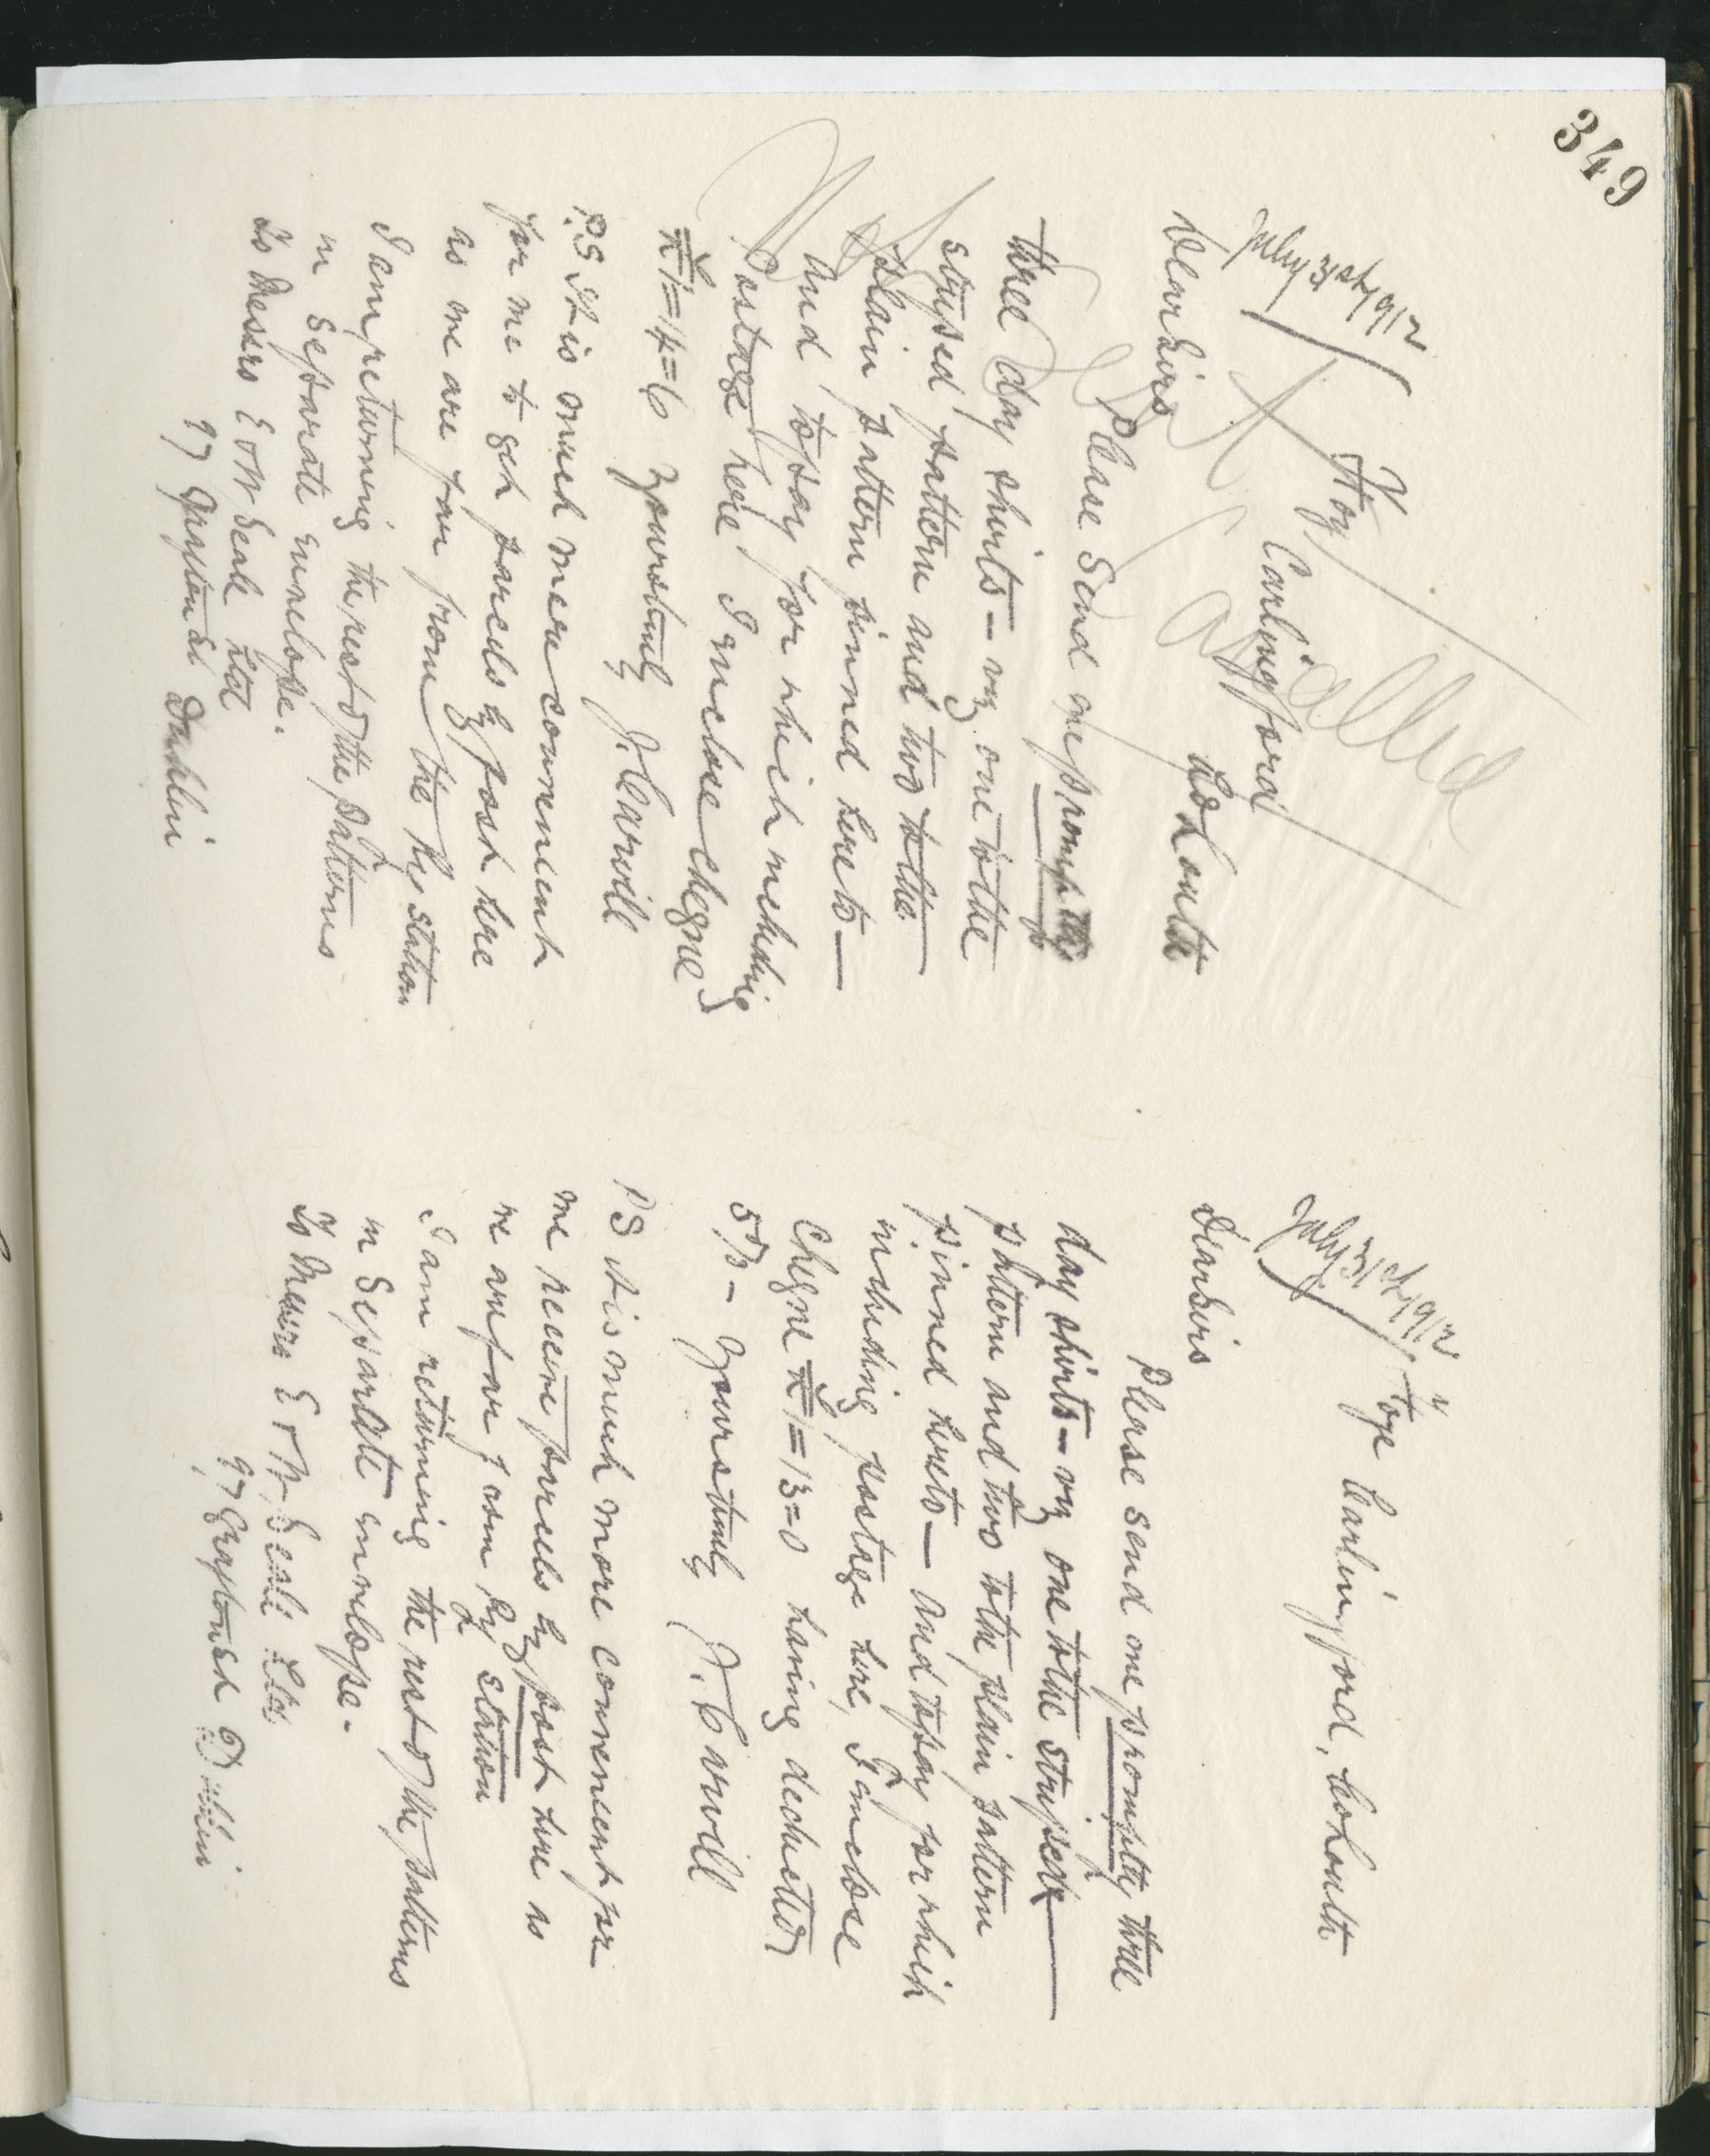 349
July 31st 1912
Foy
Carlingford
Co Louth
Dear Sirs
Please send me promptly
three day shirts — viz one to the
striped pattern and two to the
plain pattern pinned hereto —
And to pay for which including
Postage here I enclose cheque
£1=14=6 Yours truly J. Carvill
P.S It is much more convenient
for me to get parcels by post here
as we are far from the Ry station
I am returning the rest of the patterns
in separate envelope.
To Messrs E & W Seale Ltd
97 Grafton St Dublin
Not
Cancelled
July 31st 1912
Foye Carlingford, Co Louth
Dear Sirs
Please send me promptly three
day shirts — viz one to the striped
pattern and two to the plain pattern
pinned hereto — And to pay for which
including postage here, I enclose
Cheque £1=13=0 having deducted
5% — Yours truly J. Carvill
PS it is much more convenient for
me receive parcels by post here as
we are far from Ry station
I am returning the rest of the patterns
in separate envelope.
To Messrs E & W. Seale Ltd
97 Grafton St Dublin